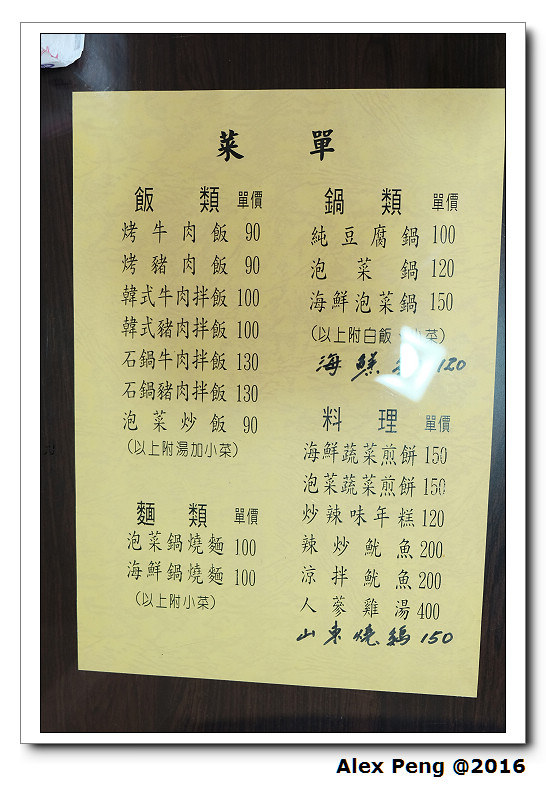 菜 單
飯 類 單價
烤牛肉飯 90
烤豬肉飯 90
韓式牛肉拌飯 100
韓式豬肉拌飯 100
石鍋牛肉拌飯 130
石鍋豬肉拌飯 130
泡菜炒飯 90
(以上附湯加小菜)
麵 類 單價
泡菜鍋燒麵 100
海鮮鍋燒麵 100
(以上附小菜)
鍋 類 單價
純豆腐鍋 100
泡菜鍋 120
海鮮泡菜鍋 150
(以上附白飯 小菜)
海鮮 120
料 理 單價
海鮮蔬菜煎餅 150
泡菜蔬菜煎餅 150
炒辣味年糕 120
辣炒魷魚 200
涼拌魷魚 200
人蔘雞湯 400
山東燒鷄 150
Alex Peng @2016